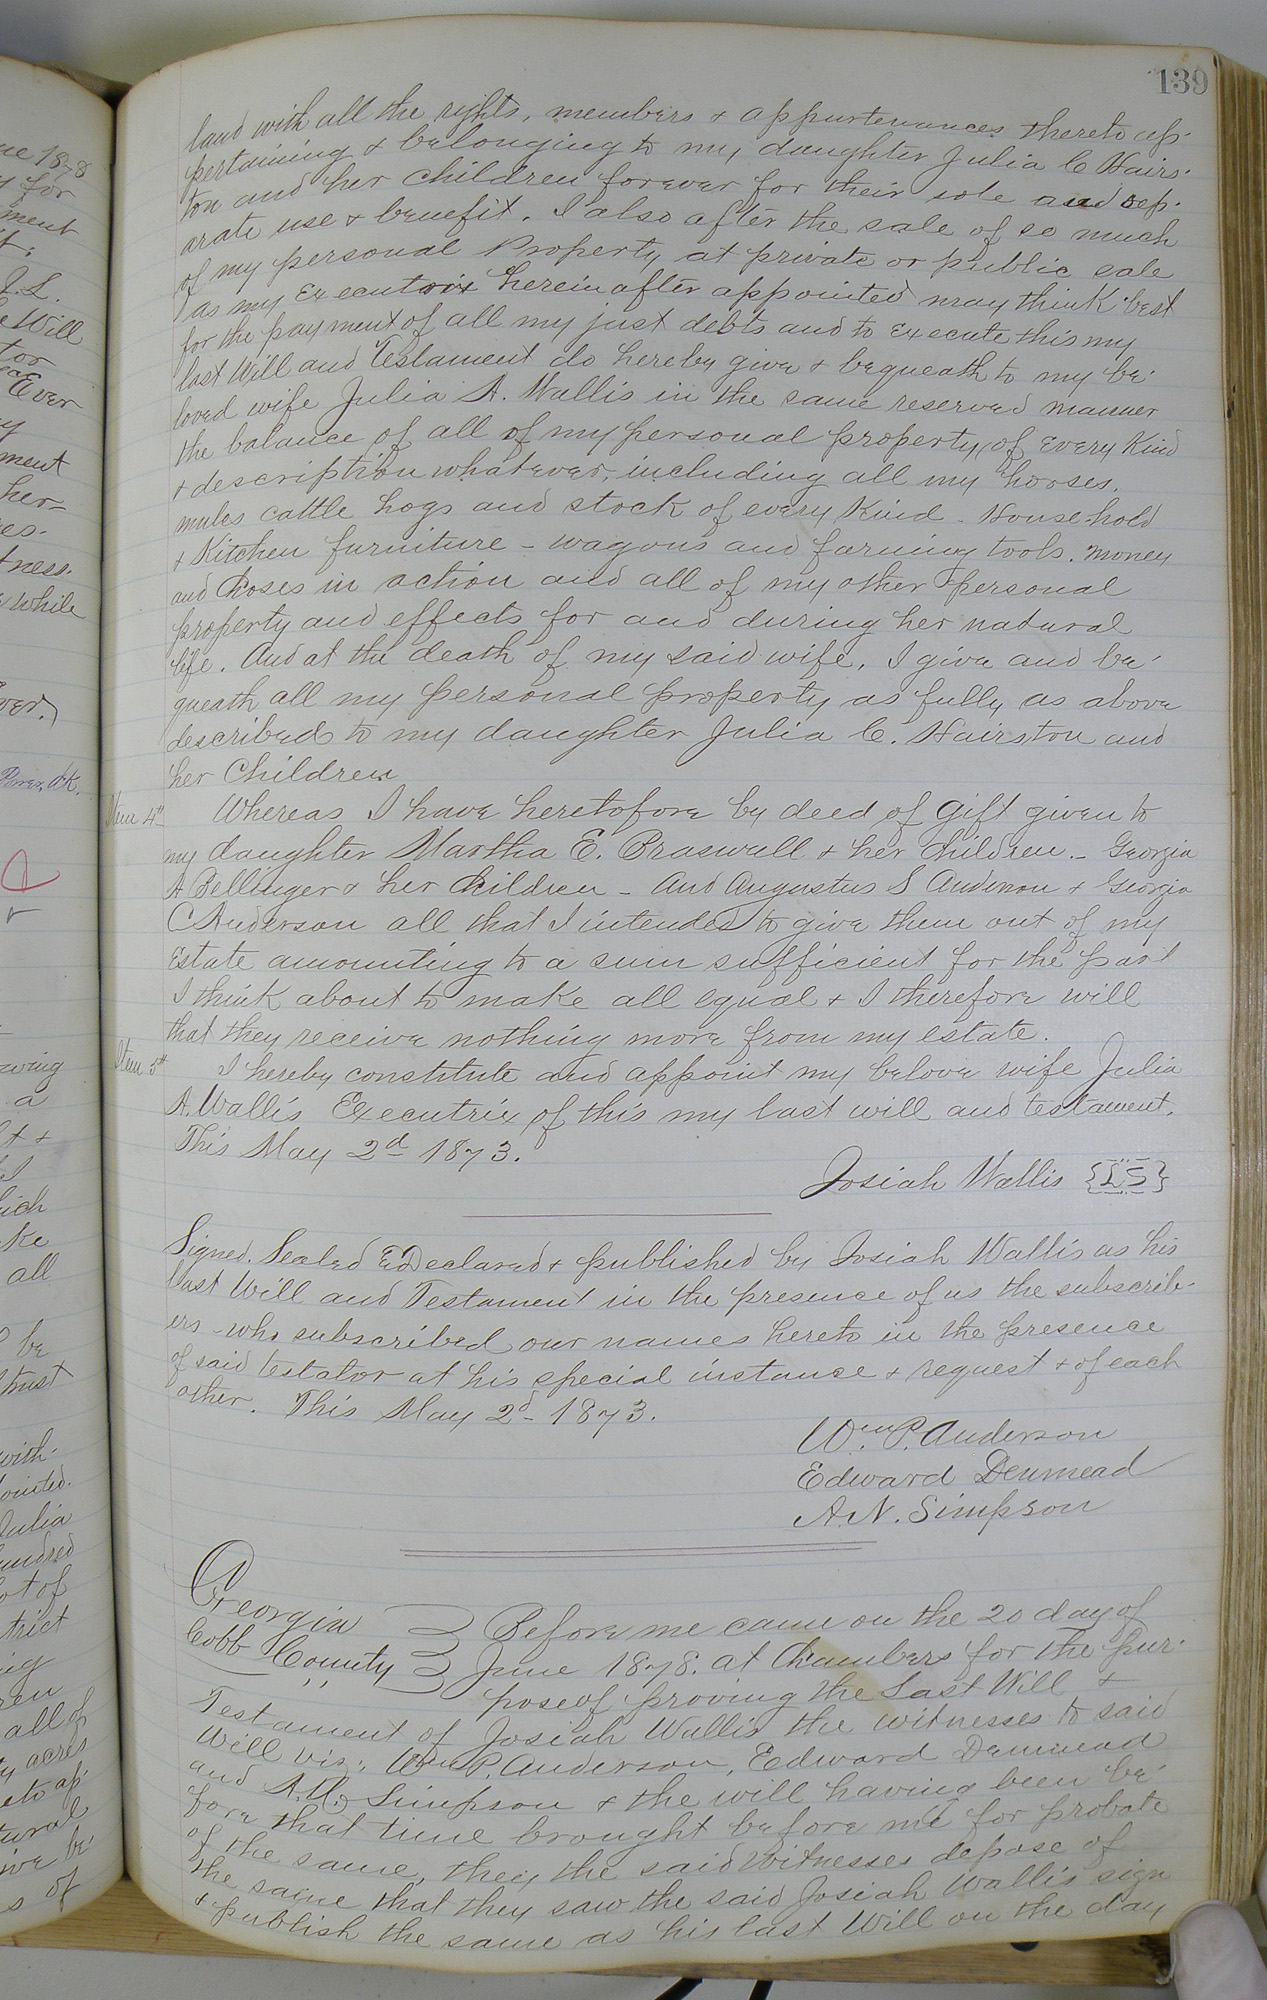 139
land with all the rights, members & appurtenances thereto ap-
pertaining & belonging to my daughter Julia C Hairs-
ton and her children forever for their sole and sep-
arate use & benefit. I also after the sale of so much
of my personal Property at private or public sale
as my Executrix herein after appointed may think best
for the payment of all my just debts and to execute this my
last Will and Testament do hereby give & bequeath to my be-
loved wife Julia A. Wallis in the same reserved manner
the balance of all of my personal property of every Kind
& description whatever, including all my horses,
mules cattle hogs and stock of every Kind - House-hold
& Kitchen furniture - wagons and farming tools. money
and Choses in action and all of my other personal
property and effects for and during her natural
life. And at the death of my said wife, I give and be-
queath all my personal property as fully as above
described to my daughter Julia C. Hairston and
her Children
Item 4th Whereas I have heretofore by deed of Gift given to
my daughter Martha E. Braswell & her Children - Georgia
A Bellinger & her Children - And Augustus S Anderson & Georgia
C Anderson all that I intended to give them out of my
Estate amounting to a sum sufficient for the part
I think about to make all equal & I therefore will
that they receive nothing more from my estate.
Item 5th I hereby constitute and appoint my belove wife Julia
A. Wallis Executrix of this my last will and testament.
This May 2d 1873.
Josiah Wallis {LS}
Signed, Sealed & Declared & published by Josiah Wallis as his
last Will and Testament in the presence of us the subscrib-
ers who subscribed our names hereto in the presence
of said testator at his special instance & request & of each
other. This May 2d 1873.
Wm P. Anderson
Edward Denmead
A. N. Simpson
Georgia } Before me came on the 20 day of
Cobb County } June 1878. at Chambers for the pur-
pose of proving the Last Will &
Testament of Josiah Wallis the witnesses to said
Will viz; Wm P. Anderson, Edward Denmead
and A. N. Simpson & the will having been be-
fore that time brought before me for probate
of the same, they the said Witnesses depose of
the same that they saw the said Josiah Wallis sign
& publish the same as his last Will on the day